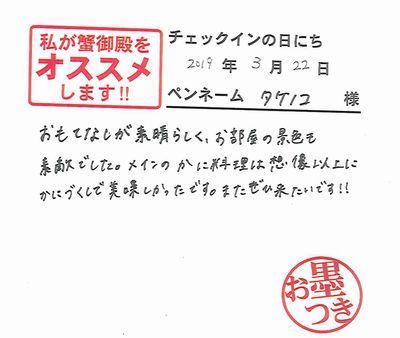 私が蟹御殿を
オススメ
します!!
チェックインの日にち
2019 年 3 月 22 日
ペンネーム タケノコ 様
おもてなしが素晴らしく、お部屋の景色も
素敵でした。メインのかに料理は想像以上に
かにづくしで美味しかったです。またぜひ来たいです!!
お墨つき